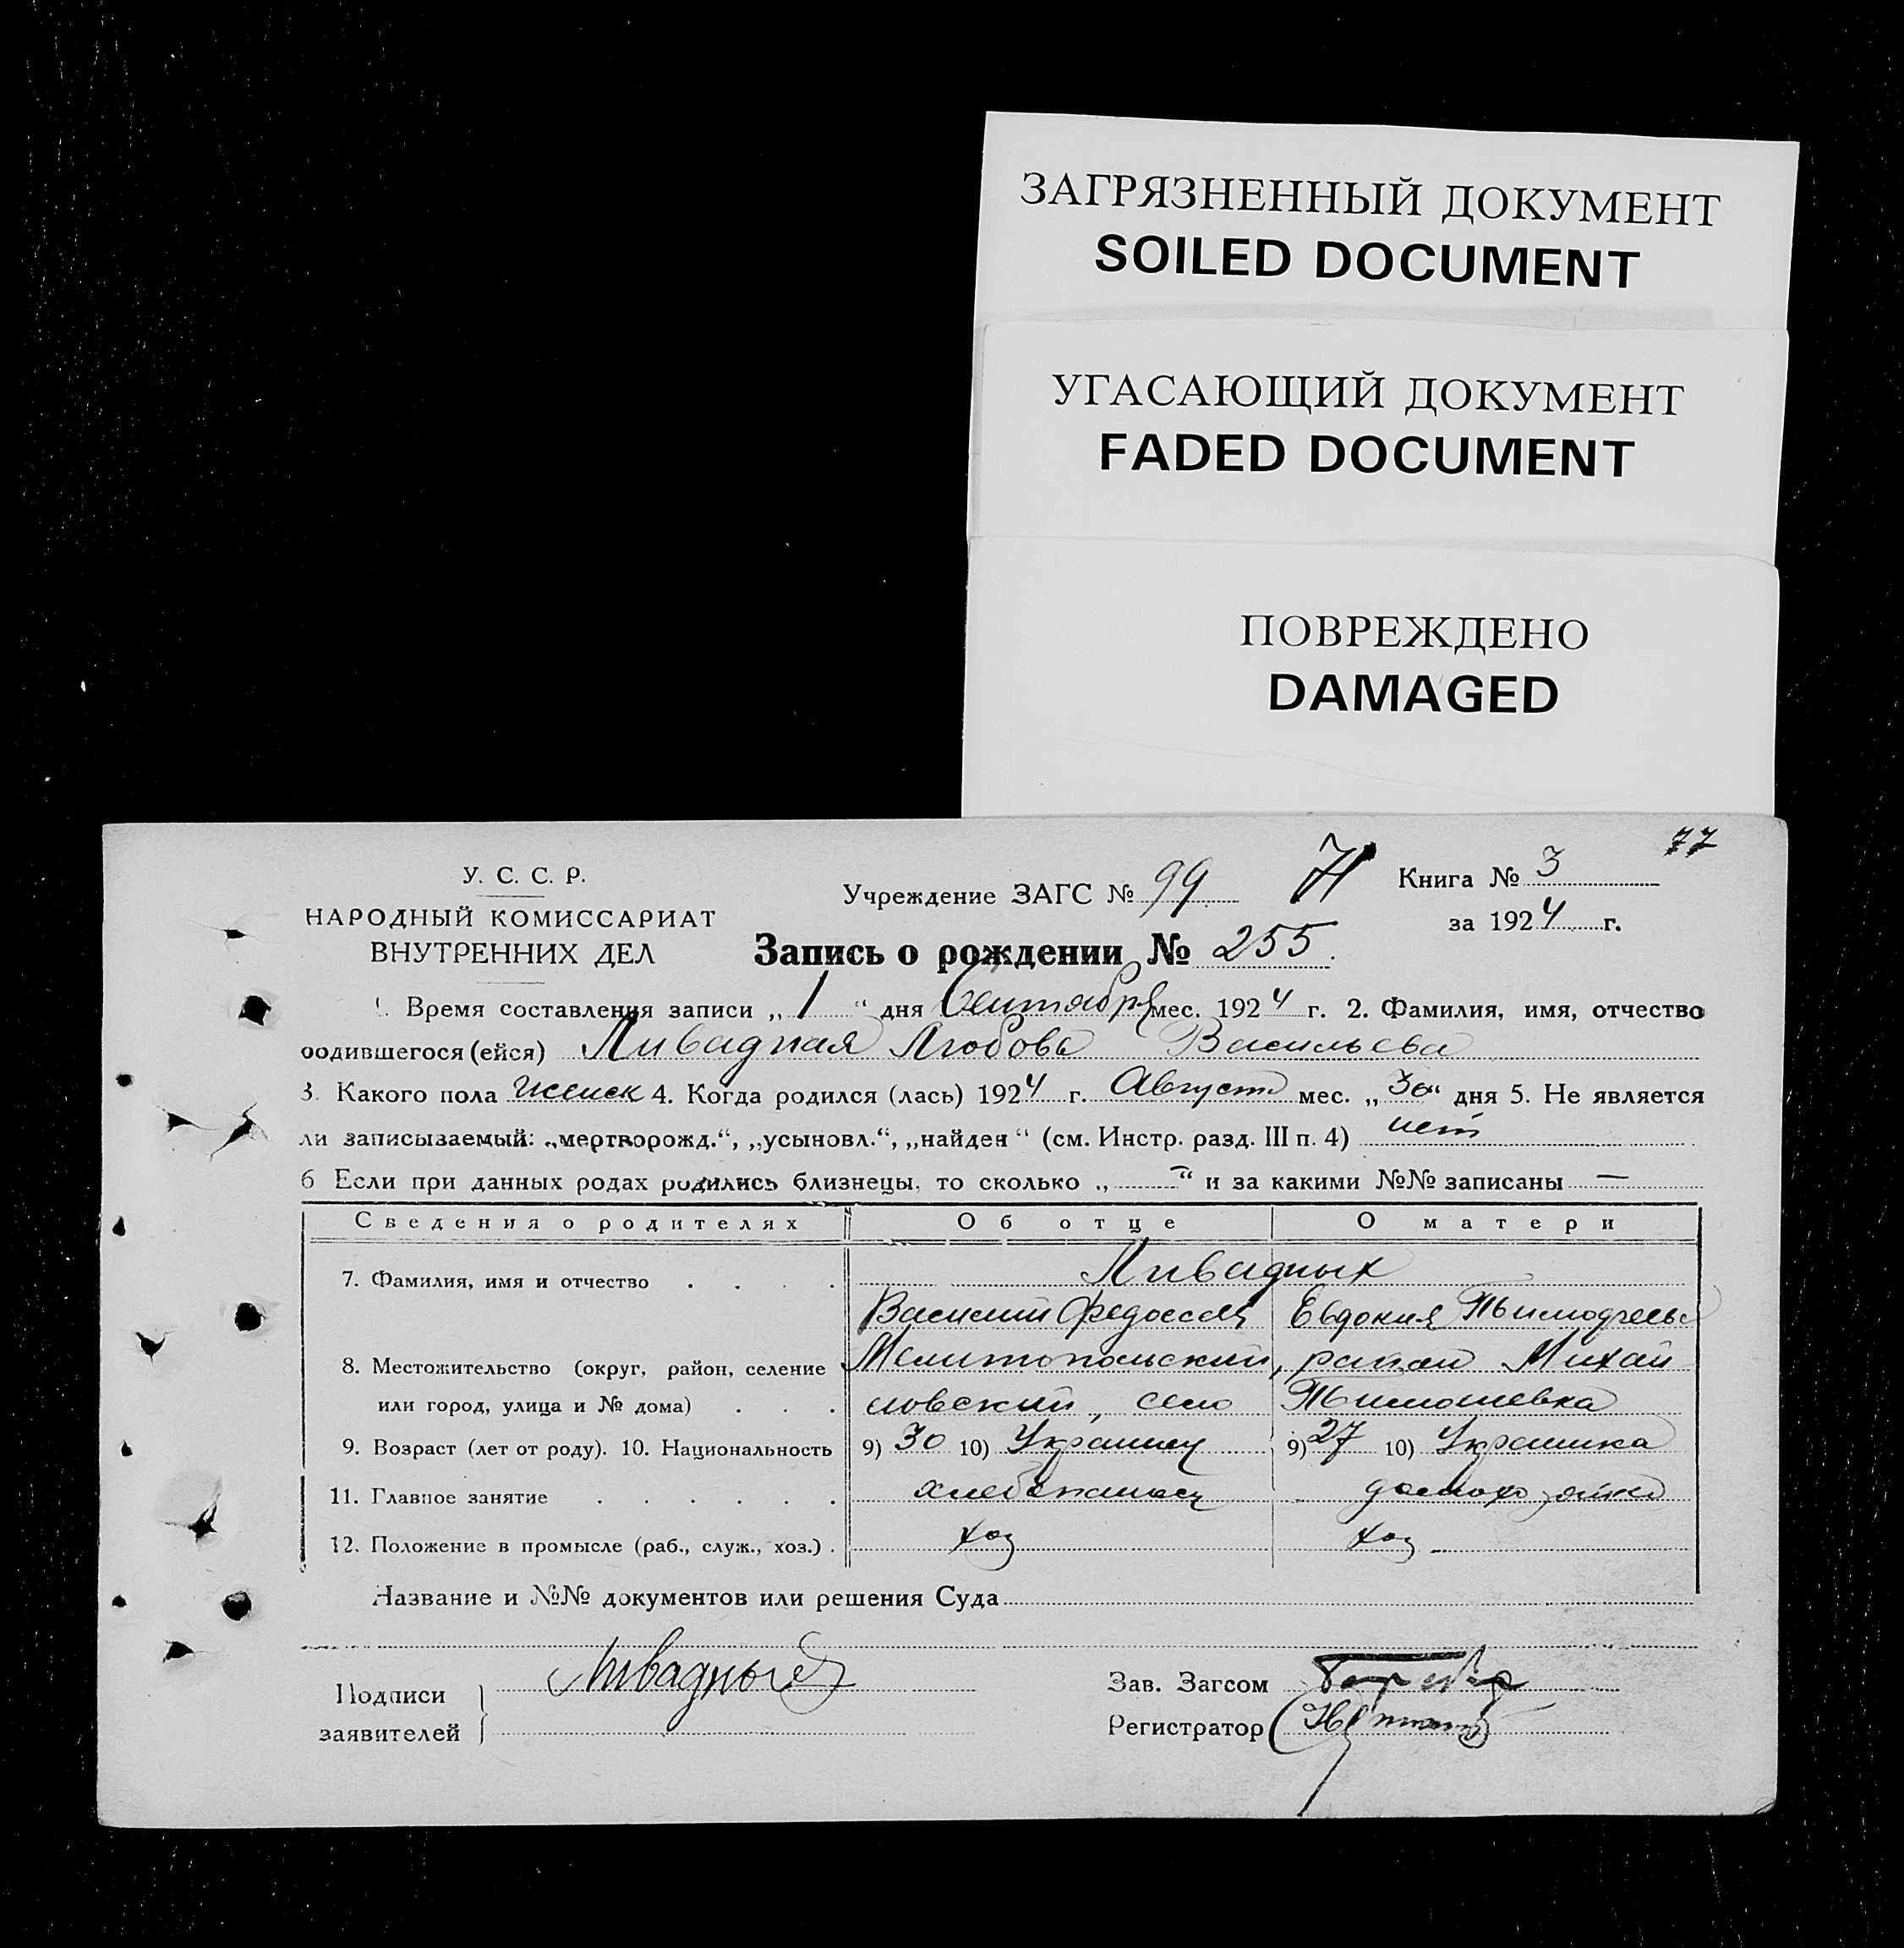 ЗАГРЯЗНЕННЫЙ ДОКУМЕНТ
SOILED DOCUMENT
УГАСАЮЩИЙ ДОКУМЕНТ
FADED DOCUMENT
ПОВРЕЖДЕНО
DAMAGED
77
У. С. С. Р.
НАРОДНЫЙ КОМИССАРИАТ
ВНУТРЕННИХ ДЕЛ
Учреждение ЗАГС № 99
Книга № 3
за 1924 г.
Запись о рождении № 255
Время составления записи „ 1 “ дня Сентября мес. 1924 г. 2. Фамилия, имя, отчество
родившегося (ейся) Ливадная Любовь Васильева
3. Какого пола женск 4. Когда родился (лась) 1924 г. Август мес. „ 30 “ дня 5. Не является
ли записываемый: „мертворожд.“, „усыновл.“, „найден“ (см. Инстр. разд. III п. 4) нет
6 Если при данных родах родились близнецы, то сколько „ — “ и за какими №№ записаны —
Сведения о родителях Об отце О матери
7. Фамилия, имя и отчество . . . . Ливадных
Василий Федосеев Евдокия
8. Местожительство (округ, район, селение Мелитопольский, район Михай
или город, улица и № дома) . . . ловский, село Тимошевка
9. Возраст (лет от роду). 10. Национальность 9) 30 10) Украинец 9) 27 10) Украинка
11. Главное занятие . . . . . . хлебопашец домохозяйка
12. Положение в промысле (раб., служ., хоз.) . хоз хоз
Название и №№ документов или решения Суда
Подписи
заявителей
Зав. Загсом
Регистратор